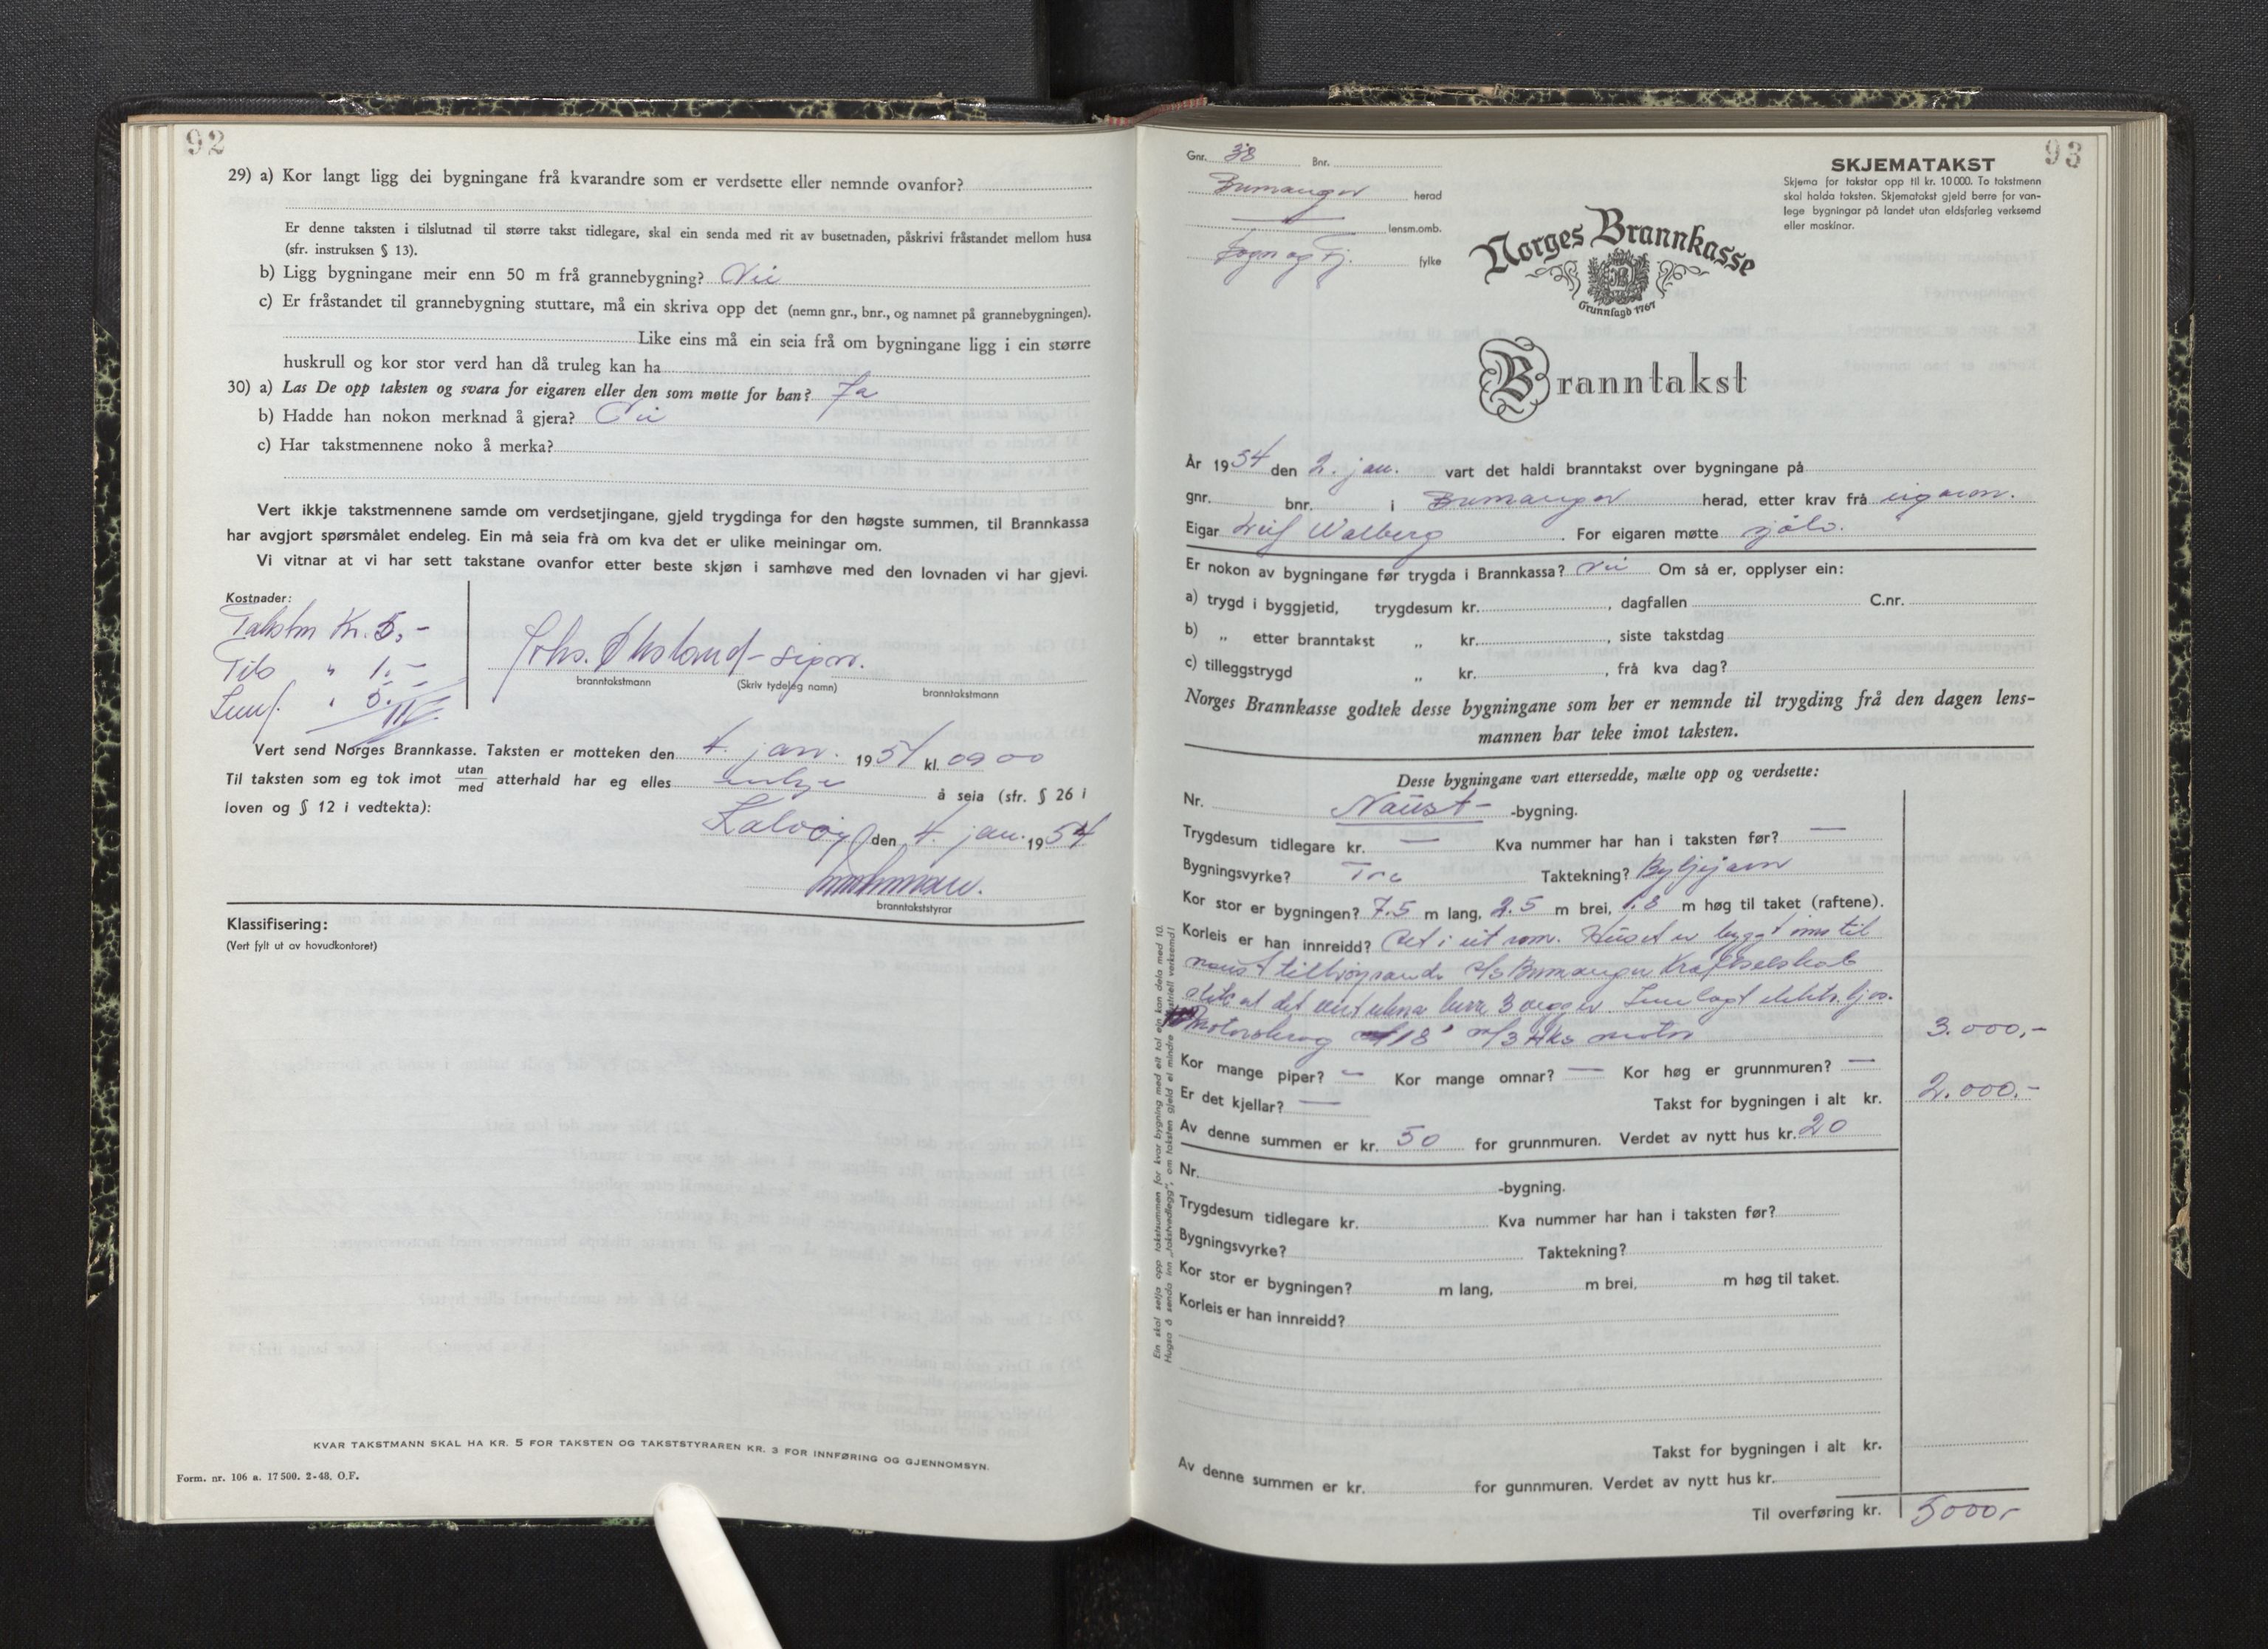 92
29) a) Kor langt ligg dei bygningane frå kvarandre som er verdsette eller nemnde ovanfor?
Er denne taksten i tilslutnad til større takst tidlegare, skal ein senda med rit av busetnaden, påskrivi fråstandet mellom husa
(sfr. instruksen § 13).
b) Ligg bygningane meir enn 50 m frå grannebygning? Nei
c) Er fråstandet til grannebygning stuttare, må ein skriva opp det (nemn gnr., bnr., og namnet på grannebygningen).
Like eins må ein seia frå om bygningane ligg i ein større
huskrull og kor stor verd han då truleg kan ha
30) a) Las De opp taksten og svara for eigaren eller den som møtte for han? Ja
b) Hadde han nokon merknad å gjera? Nei
c) Har takstmennene noko å merka?
Vert ikkje takstmennene samde om verdsetjingane, gjeld trygdinga for den høgste summen, til Brannkassa
har avgjort spørsmålet endeleg. Ein må seia frå om kva det er ulike meiningar om.
Vi vitnar at vi har sett takstane ovanfor etter beste skjøn i samhøve med den lovnaden vi har gjevi.
Kostnader:
Takstm Kr. 5,-
" 1.-
" 5.-
Johs. sign.
branntakstmann (Skriv tydeleg namn) branntakstmann
Vert send Norges Brannkasse. Taksten er motteken den 4. jan. 1954 kl. 09 00
Til taksten som eg tok imot utan/med atterhald har eg elles å seia (sfr. § 26 i
loven og § 12 i vedtekta):
Kalvåg den 4. jan. 1954
branntakststyrar
Klassifisering:
(Vert fylt ut av hovudkontoret)
KVAR TAKSTMANN SKAL HA KR. 5 FOR TAKSTEN OG TAKSTSTYRAREN KR. 3 FOR INNFØRING OG GJENNOMSYN.
Form. nr. 106 a. 17 500. 2-48. O.F.
93
Gnr. 38 Bnr.
Bremanger herad
lensm.omb.
Sogn og Fj. fylke
SKJEMATAKST
Skjema for takstar opp til kr. 10 000. To takstmenn
skal halda taksten. Skjematakst gjeld berre for van-
lege bygningar på landet utan eldsfarleg verksemd
eller maskinar.
Norges Brannkasse
Grunnlagd 1767
Branntakst
År 1954 den 2. jan. vart det haldi branntakst over bygningane på
gnr. bnr. i Bremanger herad, etter krav frå eigaren.
Eigar Leif Walberg. For eigaren møtte sjølv.
Er nokon av bygningane før trygda i Brannkassa? Nei Om så er, opplyser ein:
a) trygd i byggjetid, trygdesum kr. , dagfallen C.nr.
b) „ etter branntakst „ kr. , siste takstdag
c) tilleggstrygd „ kr. , frå kva dag?
Norges Brannkasse godtek desse bygningane som her er nemnde til trygding frå den dagen lens-
mannen har teke imot taksten.
Desse bygningane vart ettersedde, mælte opp og verdsette:
Nr. Naust- -bygning.
Trygdesum tidlegare kr. — Kva nummer har han i taksten før? —
Bygningsvyrke? Tre Taktekning? Bylgjejarn
Kor stor er bygningen? 7.5 m lang, 2.5 m brei, 1.8 m høg til taket (raftene).
Korleis er han innreidd? Det i eit rom. Huset er bygt inn til
naust tilhøyrande A/S Bremanger Kraftselskab
slik at det vert rekna berre 3 vegger. Innlagt elektr. ljos.
Motorsnag 18' m/3 Hks motor 3.000,-
Kor mange piper? — Kor mange omnar? — Kor høg er grunnmuren? —
Er det kjellar? — Takst for bygningen i alt kr. 2.000,-
Av denne summen er kr. 50 for grunnmuren. Verdet av nytt hus kr. 20
Nr. -bygning.
Trygdesum tidlegare kr. Kva nummer har han i taksten før?
Bygningsvyrke? Taktekning?
Kor stor er bygningen? m lang, m brei, m høg til taket.
Korleis er han innreidd?
Takst for bygningen i alt kr.
Av denne summen er kr. for gunnmuren. Verdet av nytt hus kr.
Til overføring kr. 5000,-
Ein skal setja opp takstsummen for kvar bygning med eit tal ein kan dela med 10.